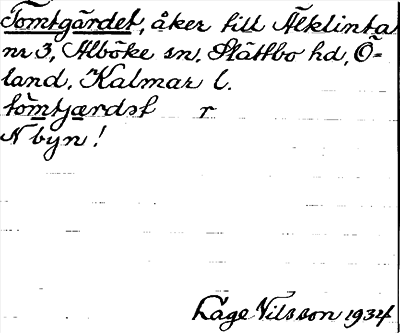 Tomtgärdet, åker till Älklinta
nr 3, Alböke sn, Slättbo hd, Ö-
land, Kalmar l.
tomtjærdst r
N byn!
Låge Nilsson 1934